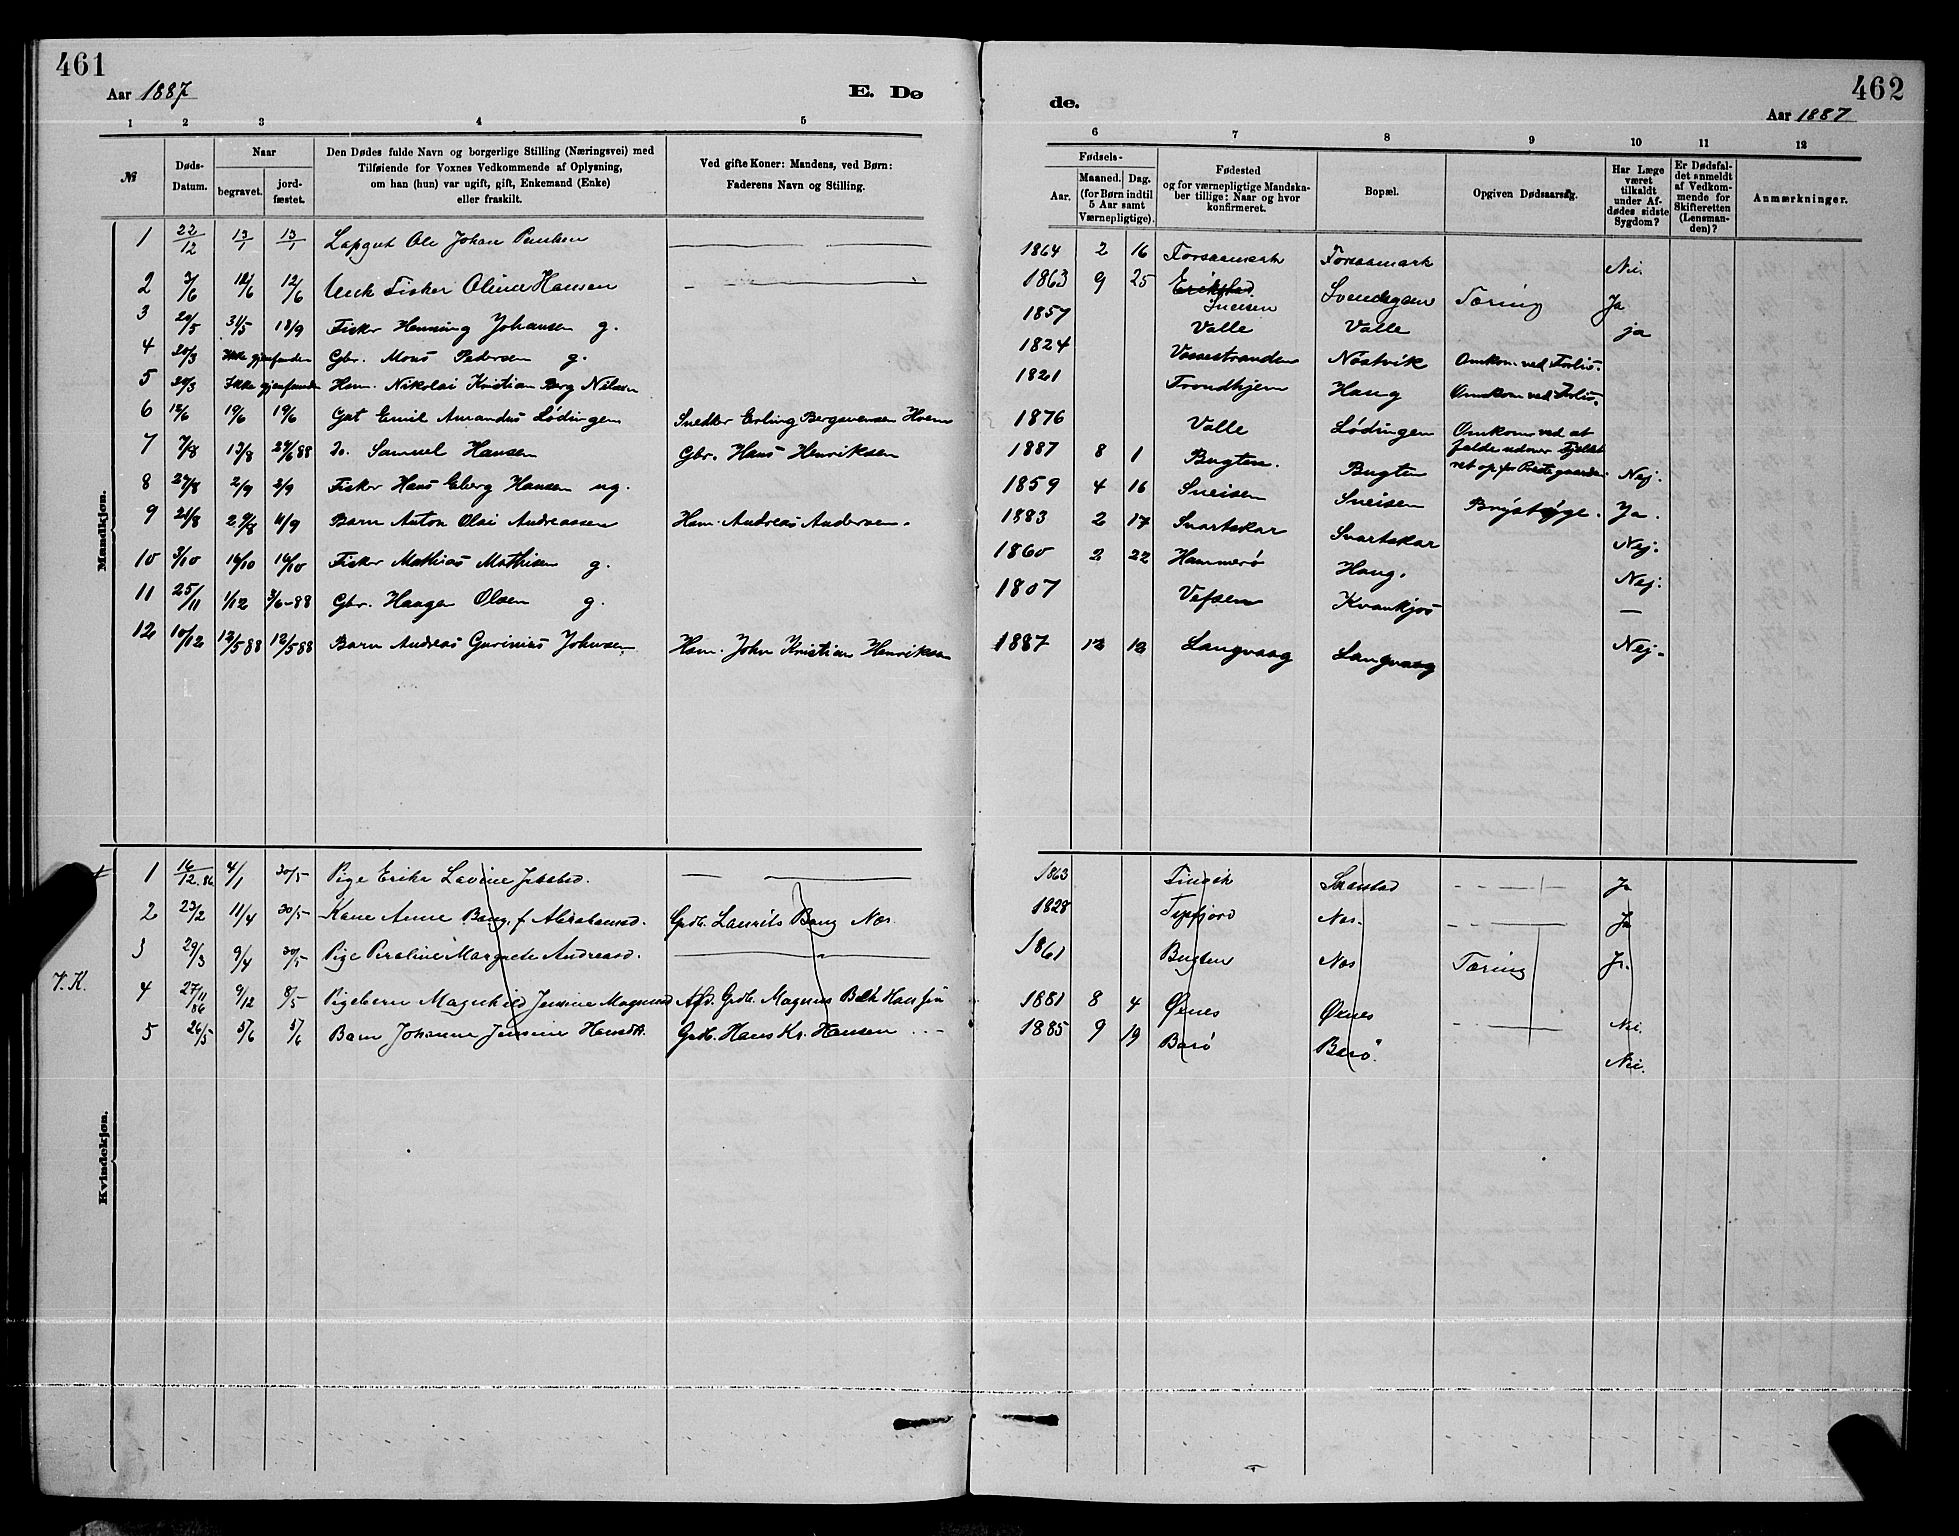 461
Aar 1887
E. Dø
1 2 3 4 5
№
Døds-
Datum.
Naar
begravet.
jord-
fæstet.
Den Dødes fulde Navn og borgerlige Stilling (Næringsvei) med
Tilføiende for Voxnes Vedkommende af Oplysning,
om han (hun) var ugift, gift, Enkemand (Enke)
eller fraskilt.
Ved gifte Koner: Mandens, ved Børn:
Faderens Navn og Stilling.
Mandkjøn.
1 22/12 13/1 13/1 Ole Johan
2 3/6 12/6 12/6 Fisker Oliver Hansen
3 29/5 31/5 18/9 Fisker Henning Johansen g.
4 20/3 Ikke gjenfunden Gbr. Mons Pedersen g.
5 20/3 Ikke gjenfunden Hsm. Nikolai Kristian Berg Nilsen
6 12/6 19/6 19/6 Gut Emil Amandus Lødingen Snedker Erling Bergsvensen
7 7/8 13/8 24/6 88 Do. Samuel Hansen Gbr. Hans Henriksen
8 27/8 2/9 2/9 Fisker Hans Eberg Hansen ug.
9 21/8 29/8 11/9 Barn Anton Olai Andreassen Hsm. Andreas Andersen.
10 3/10 16/10 16/10 Fisker Mathias Mathisen g.
11 25/11 1/12 3/6-88 Gbr. Haagen Olsen g.
12 10/12 12/5 88 12/5 88 Barn Andreas Gurinius Johnsen Hsm. John Kristian Henriksen
Kvindekjøn.
1 16/12.86 4/1 30/5 Pige Erika Lavine
2 23/2 11/4 30/5 Kone Anne Bang, f. Abrahamsd. Grdb. Laurits Bang Næs
3 29/3 9/4 30/5 Pige Peroline Margrete Andreasd.
V. K.
4 27/11 86 9/12 8/5 Pigebarn Magnhild Jensine Magnusd Afd. Grdb. Magnus
5 26/5 5/6 5/6 Barn Johanne Jensine Grdb. Hans Kr. Hansen
462
de.
Aar 1887
6 7 8 9 10 11 12
Fødsels-
Aar.
Maaned. Dag.
(for Børn indtil
5 Aar samt
Værnepligtige).
Fødested
og for værnepligtige Mandska-
ber tillige: Naar og hvor
konfirmeret.
Bopæl.
Opgiven Dødsaarsag.
Har Læge
været
tilkaldt
under Af-
dødes sidste
Sygdom?
Er Dødsfal-
det anmeldt
af Vedkom-
mende for
Skifteretten
(Lensman-
den)?
Anmærkninger.
1864 2 16 Forsaamark Forsaamark Nei.
1863 9 25 Erikstad Sneisen Tæring Ja
1857 Valle Valle ja
1824 Vossestranden Nøstvik Omkom ved Forlis.
1821 Trondhjem Haug Omkom ved Forlis.
1876 Valle Lødingen Omkom ved at
falde udover Fjeldet
ret op for Prestegaarden
1887 8 1 Bugten. Bugten Nej.
1859 4 16 Sneisen Sneisen Brystsyge. Ja.
1883 2 17 Svartskar Svartskar Nej.
1860 2 22 Hammerø Haug. Nej.
1807 Vefsen Kvankjos —
1887 12 12 Langvaag Langvaag Nej.
1863 Skarstad Ja
1828 Næs. Ja
1861 Bugten Næs Tæring Ja.
1881 8 4 Øxnes Øxnes Nei.
1885 9 19 Barø Barø. Nei.